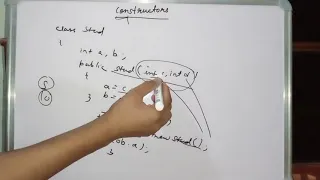 Constructors
class Stud
{
int a, b;
public Stud (int c, int d)
{
a = c
} b =
5
10
new Stud();
(ob.a);
}